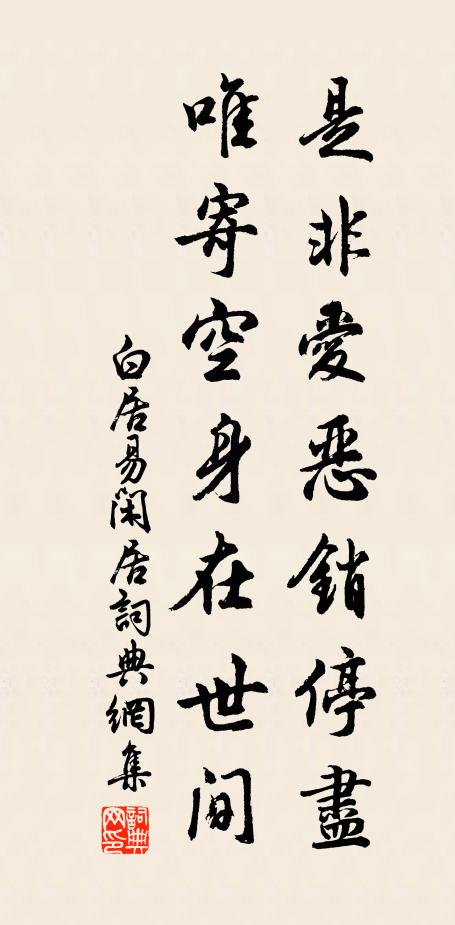 是非愛惡銷停盡
唯寄空身在世間
白居易閑居詞典網集
詞典网印